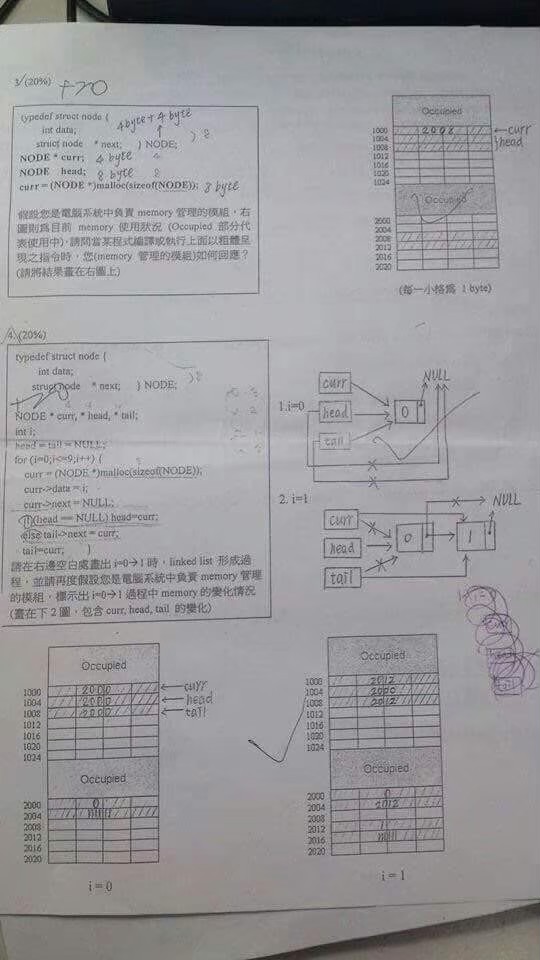 3/(20%) +20
typedef struct node {
int data;
struct node * next; } NODE;
4 byte + 4 byte
) 8
NODE * curr; 4 byte
NODE head; 8 byte 8
curr = (NODE *)malloc(sizeof(NODE)); 8 byte
假設您是電腦系統中負責 memory 管理的模組,右
圖則為目前 memory 使用狀況 (Occupied 部分代
表使用中),請問當某程式編譯或執行上面以粗體呈
現之指令時,您(memory 管理的模組)如何回應?
(請將結果畫在右圖上)
Occupied
1000 2008 ←curr
1004 head
1008
1012
1016
1020
1024
Occupied
2000
2004
2008
2012
2016
2020
(每一小格為 1 byte)
4.(20%)
typedef struct node {
int data;
struct node * next; } NODE; )8
+20
NODE * curr, * head, * tail;
int i;
head = tail = NULL;
for (i=0;i<=9;i++) {
curr = (NODE *)malloc(sizeof(NODE));
curr->data = i;
curr->next = NULL;
if(head == NULL) head=curr;
else tail->next = curr;
tail=curr; }
請在右邊空白處畫出 i=0→1 時,linked list 形成過
程,並請再度假設您是電腦系統中負責 memory 管理
的模組,標示出 i=0→1 過程中 memory 的變化情況
(畫在下 2 圖,包含 curr, head, tail 的變化)
1.i=0
curr
head
tail
0
NULL
2. i=1
curr
head
tail
0
1
NULL
Occupied
1000 2000 ←curr
1004 2000 ←head
1008 2000 ←tail
1012
1016
1020
1024
Occupied
2000 0
2004 null
2008
2012
2016
2020
i = 0
Occupied
1000 2012
1004 2000
1008 2012
1012
1016
1020
1024
Occupied
2000 0
2004 2012
2008
2012 1
2016 null
2020
i = 1